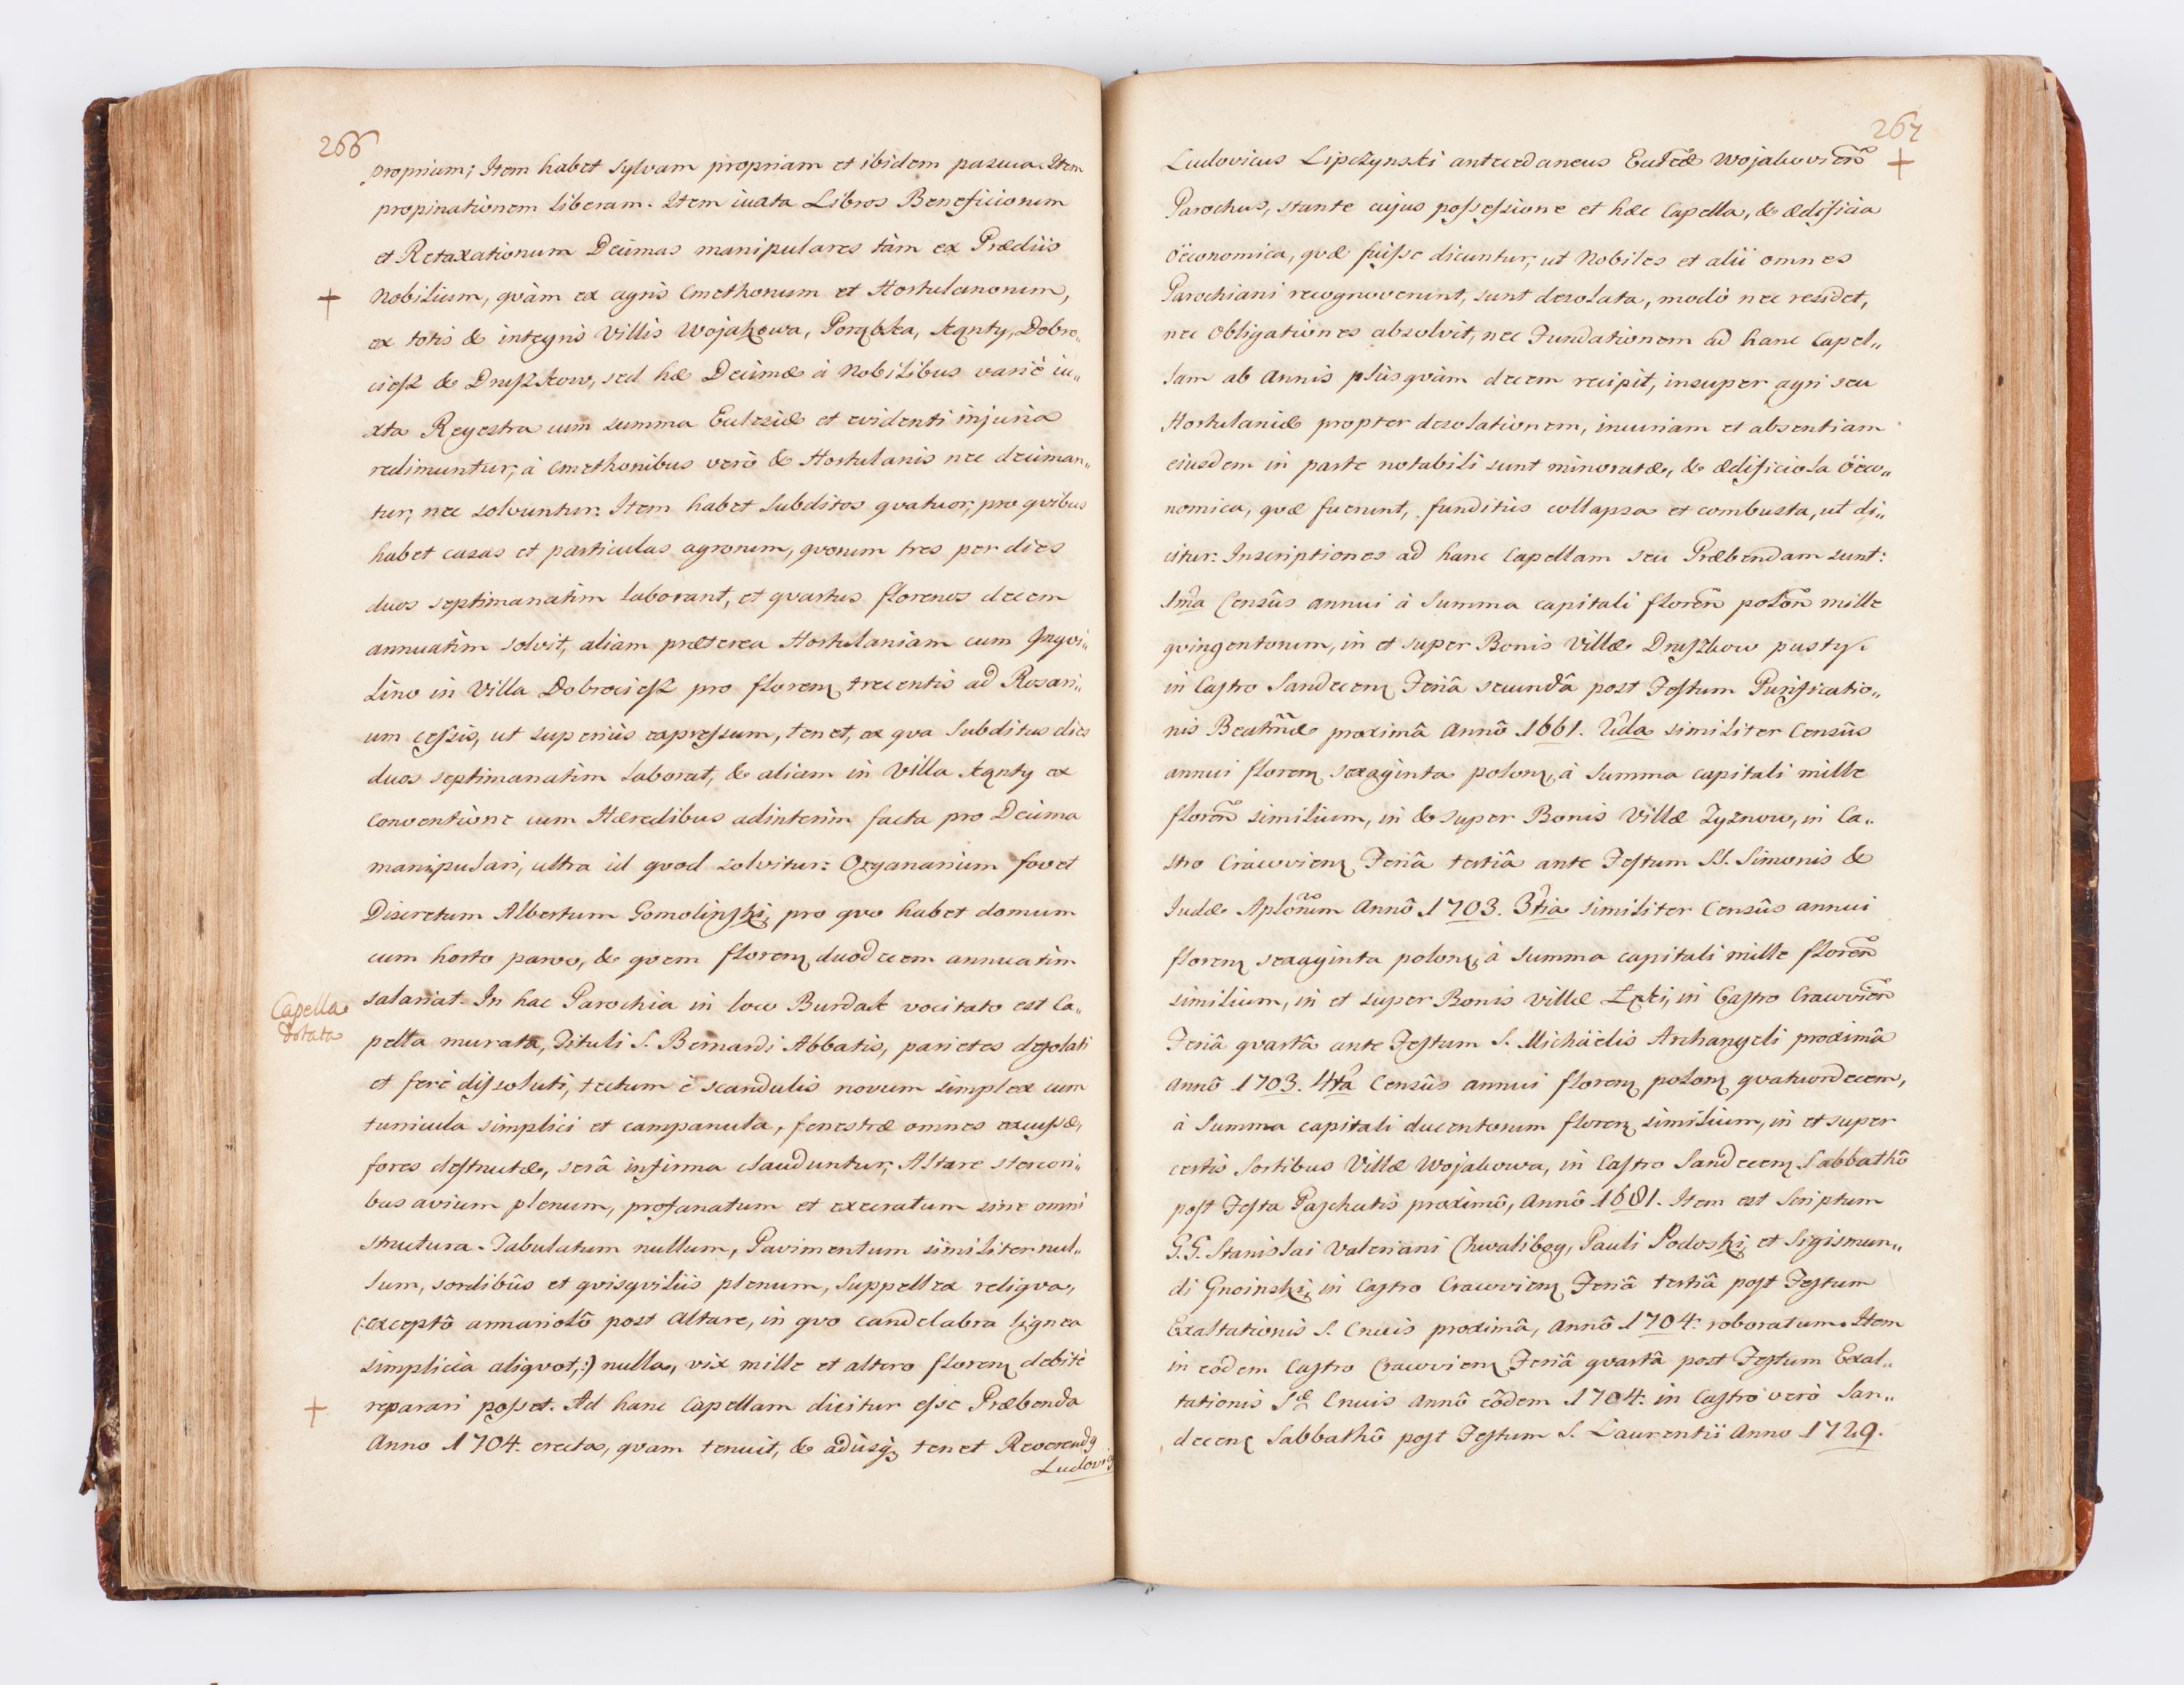 266
proprium; Item habet sylvam propriam et ibidem pascua. Item
propinationem liberam. Item iuxta Libros Beneficiorum
et Retaxationum Decimas manipulares tàm ex Prædiis
+ Nobilium, qvàm ex agris Cmethonum et Hortulanorum,
ex totis & integris Villis Wojakowa, Porąbka, Kąnty, Dobro„
ciesz & Druszkow, sed hæ Decimæ à Nobilibus variè iu„
xta Regestra cum summa Ecclesiæ et evidenti injuria
redimuntur; à Cmethonibus verò & Hortulanis nec deciman„
tur, nec solvuntur. Item habet Subditos qvatuor, pro qvibus
habet casas et particulas agrorum, qvorum tres per dies
duos septimanatim laborant, et qvartus florenos decem
annuatim solvit, aliam præterea Hortulaniam cum Inqvi„
lino in Villa Dobrociesz pro floren trecentis ad Rosari„
um cessis, ut superiùs expressum, tenet, ex qva Subditus dies
duos septimanatim laborat, & aliam in Villa Kąnty ex
Conventione cum Hæredibus adinterim facta pro Decima
manipulari, ultra id qvod solvitur: Organarium fovet
Discretum Albertum Gomolinski, pro qvo habet domum
cum horto parvo, & qvem floren duodecem annuatim
Capella
dotata
salariat. In hac Parochia in loco Burdak vocitato est Ca„
pella murata, Tituli S. Bernardi Abbatis, parietes desolati
et ferè dissoluti, tectum è scandulis novum simplex cum
turricula simplici et campanula, fenestræ omnes excussæ,
fores destructæ, serâ infirma clauduntur, Altare stercori„
bus avium plenum, profanatum et execratum sine omni
structura. Tabulatum nullum, Pavimentum similiter nul„
lum, sordibûs et qvisqviliis plenum, Suppellex reliqva,
(:exceptô armariolô post Altare, in qvo candelabra lignea
simplicia aliqvot,:) nulla, vix mille et altero floren debitè
+ reparari posset. Ad hanc Capellam dicitur esse Præbenda
Anno 1704. erecta, qvam tenuit, & adusq; tenet Reverendg
Ludovig
267
Ludovicus Lipczynski antecedaneus Ecclæ Wojakovien +
Parochus, stante cujus possessione et hæc Capella, & ædificia
öeconomica, qvæ fuisse dicuntur, ut Nobiles et alii omnes
Parochiani recognoverunt, sunt desolata, modò nec residet,
nec Obligationes absolvit, nec Fundationem ad hanc Capel„
lam ab Annis plùsqvàm decem recipit, insuper agri seu
Hortulaniæ propter desolationem, incuriam et absentiam
eiusdem in parte notabili sunt minoratæ, & ædificiola öeco„
nomica, qvæ fuerunt, funditùs collapsa et combusta, ut di„
citur: Inscriptiones ad hanc Capellam seu Præbendam sunt:
1ma Censûs annui à Summa capitali floren polon mille
qvingentorum, in et super Bonis Villæ Druszkow pusty,
in Castro Sandecen Feriâ secundâ post Festum Purificatio„
nis Beatmæ proximâ Annô 1661. 2da similiter Censûs
annui floren sexaginta polon, à Summa capitali mille
floren similium, in & super Bonis Villæ Zyznow, in Ca„
stro Cracovien Feriâ tertiâ ante Festum SS. Simonis &
Judæ Aplorum Annô 1703. 3tia similiter Censûs annui
floren sexaginta polon, à Summa capitali mille floren
similium, in et super Bonis Villæ Łęki, in Castro Cracovien
Feriâ qvartâ ante Festum S. Michäelis Archangeli proximâ
Annô 1703. 4ta Censûs annui floren polon qvatuordecem,
à Summa capitali ducentorum floren similium, in et super
certis Sortibus Villæ Wojakowa, in Castro Sandecen Sabbathô
post Festa Paschatis proximô, Annô 1681. Item est Scriptum
G.G. Stanislai Valeriani Chwalibog, Pauli Podoski, et Sigismun„
di Gnoinski, in Castro Cracovien Feriâ tertiâ post Festum
Exaltationis S. Crucis proximâ, Annô 1704. roboratum. Item
in eôdem Castro Cracovien Feriâ qvartâ post Festum Exal„
tationis Sæ Crucis Annô eôdem 1704. in Castro verò San„
decen Sabbathô post Festum S. Laurentii Anno 1729.